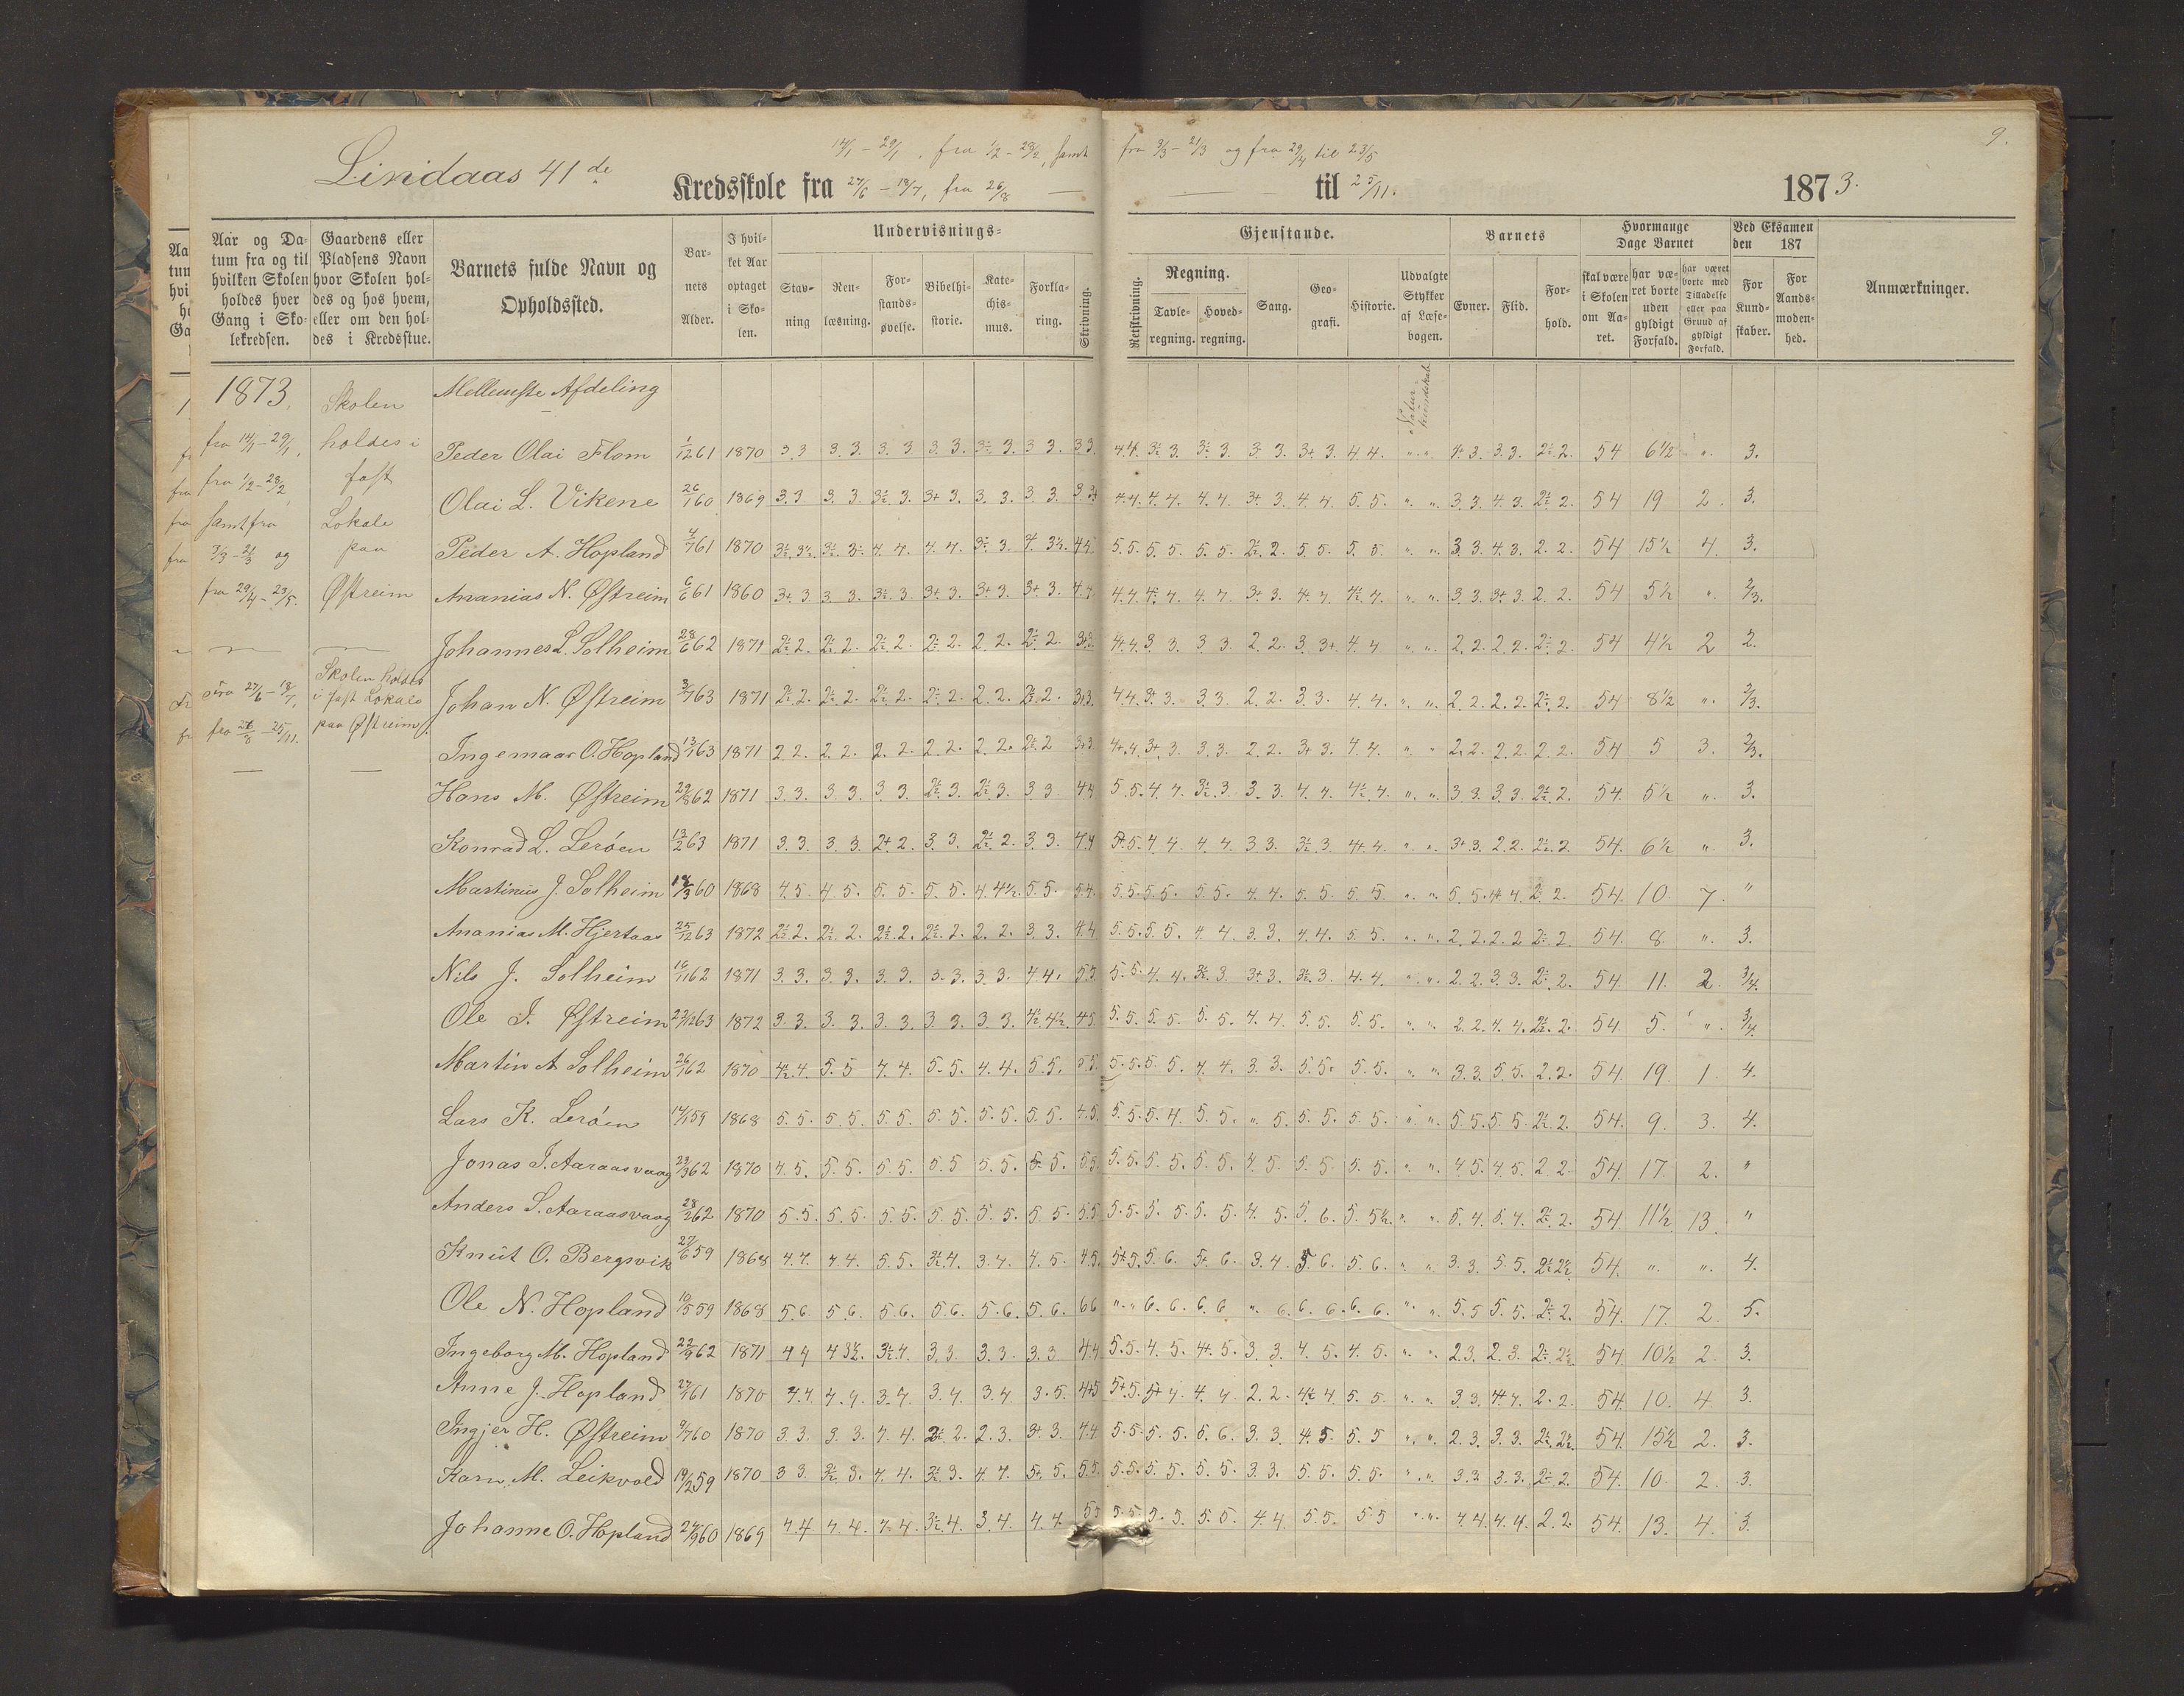 9.
14/1 – 29/1, fra 1/2 – 28/2, samt fra 3/3 – 21/3 og fra 29/4 til 23/5
Lindaas 41de Kredsskole fra 27/6 – 18/7, fra 26/8 — til 25/11. 1873.
Aar og Da-
tum fra og til
hvilken Skolen
holdes hver
Gang i Sko-
lekredsen.
Gaardens eller
Pladsens Navn
hvor Skolen hol-
des og hos hvem,
eller om den hol-
des i Kredsstue.
Barnets fulde Navn og
Opholdssted.
Bar-
nets
Alder.
I hvil-
ket Aar
optaget
i Sko-
len.
Undervisnings-
Stav-
ning
Ren-
læsning.
For-
stands-
øvelse.
Bibelhi-
storie.
Kate-
chis-
mus.
Forkla-
ring.
Skrivning.
Gjenstande.
Retskrivning.
Regning.
Tavle-
regning.
Hoved-
regning.
Sang.
Geo-
grafi.
Historie.
Udvalgte
Stykker
af Læse-
bogen.
Barnets
Evner.
Flid.
For-
hold.
Hvormange
Dage Barnet
skal være
i Skolen
om Aa-
ret.
har væ-
ret borte
uden
gyldigt
Forfald.
har været
borte med
Tilladelse
eller paa
Grund af
gyldigt
Forfald.
Ved Eksamen
den 187
For
Kund-
skaber.
For
Aands-
moden-
hed.
Anmærkninger.
1873.
fra 14/1 – 29/1,
fra 1/2 – 28/2
samt fra
3/3 – 21/3 og
fra 29/4 – 23/5.
Fra 27/6 – 18/7,
fra 26/8 – 25/11.
Skolen
holdes i
fast
Lokale
paa
Østreim
Skolen holdes
i fast Lokale
paa Østreim
Mellemste Afdeling
Natur-
kundskab
Peder Olai Flom 1/12 61 1870 3 3 3. 3. 3. 3 3. 3. 3½ 3. 3 3. 3 3. 4.4. 3½ 3. 3½ 3. 3 3. 3+ 3. 4.4. " " 4 3. 3.3. 2½ 2. 54 6½ " 3.
Olai L. Vikene 26/1 60 1869 3. 3 3. 3 3½ 3. 3+ 3. 3. 3. 3. 3. 4.4. 4. 4. 4. 4 3+ 3. 4. 4. 5 5. " " 3 3. 4 3. 2½ 2. 54 19 2. 3.
Peder A. Hopland 4/7 61 1870 3½ 3½. 4. 4. 4. 4. 3½ 3. 4. 3½. 4 4. 5.5. 5. 5. 5. 5. 2½ 2. 5. 5. 5. 5. " " 3 3. 4 3. 2. 2. 54 15½ 4. 3.
Ananias N. Østreim 6/6 61 1860 3+ 3 3. 3. 3½ 3. 3+ 3. 3+ 3. 3+ 3. 4.4. 4.4. 4½ 4. 4. 4. 3+ 3. 4. 4. 4½ 4. " " 3 3. 3+ 3. 2. 2. 54 5½ " 2/3.
Johannes L. Solheim 28/6 62 1871 2½ 2. 2½ 2. 2½ 2. 2½ 2. 2 2. 2½ 2. 3+3. 4+.4. 3 3. 3 3. 2 2. 3 3+. 4. 4 " " 2. 2. 2. 2. 2½ 2 54 4½ 2 2.
Johan N. Østreim 3/7 63 1871 2½ 2. 2½ 2. 2½ 2. 2½ 2. 2 2. 2½ 2. 3+3. 4.4. 3+ 3. 3 3. 2 2. 3 3. 4 4. " " 2. 2. 2. 2. 2½ 2. 54 8½ " 2/3.
Ingemaar O. Hopland 13/1 63 1871 2 2. 2 2. 2. 2. 2. 2. 2 2. 2½ 2 3+3. 4+.4. 3+. 3. 3 3. 2 2. 3+ 3. 4. 4. " " 2. 2. 2. 2. 2 2. 54 5 3. 2/3.
Hans M. Østreim 22/8 62 1871 3. 3. 3 3. 3 3 2½ 3. 2½ 3. 3 3 4 4 5.5. 4. 4. 3½ 3. 3 3. 4. 4. 4½ 4. " " 3 3. 3 3. 2½ 2. 54. 5½ " 3.
Konrad L. Lerøen 13/2 63 1871 3. 3. 3 3. 2+ 2. 3 3. 2½ 2. 3 3. 4.4 5+.5. 4 4. 4. 4. 3 3. 3½ 3. 4+ 4. " " 3+ 3. 2 2. 2½ 2. 54. 6½ " 3.
Martinus J. Solheim 18/3 60 1868 4. 5. 4 5. 5. 5. 5. 5. 4. 4½. 5. 5. 5.4. 5.5. 5. 5. 5. 5. 4. 4. 5 5. 5 5. " " 5 5. 4+ 4. 2½ 2. 54. 10. 7. "
Ananias M. Hjertaas 25/12 63 1872 2½ 2. 2½ 2. 2½ 2. 2½ 2. 2 2. 3 3. 4.4. 5.5. 5 5. 4 4. 3 3. 4. 4. 5 5. " " 2. 2. 2. 2 2½ 2 54. 8. " 3.
Nils J. Solheim 16/11 62 1871 3. 3. 3 3. 3 3. 3. 3. 3 3. 4. 4. 5.5. 5. 5. 4. 4. 3½ 3. 3+ 3. 3½ 3. 4. 4. " " 2 2. 3 3. 2½ 2. 54. 11. 2. 3/4.
Ole I. Østreim 23/12 63 1872 3. 3. 3. 3. 3. 3. 3 3. 3 3. 4½ 4½. 4 5. 5.5. 5. 5. 5. 5. 4. 4. 5 5. 5 5. " " 2 2. 4. 4. 2½ 2. 54. 5. " 3/4.
Martin A Solheim 26/1 62 1870 4½ 4 5. 5 4. 4. 5. 5. 4. 4. 5. 5. 5 5. 5.5. 5. 5. 4. 4. 3 3. 5. 5. 5. 5. " " 3. 3. 5 5. 2. 2. 54. 19. 1. 4.
Lars K. Lerøen 14/1 59 1868 5. 5. 5. 5. 5. 5. 5. 5. 5. 5. 5. 5. 4.5. 5.5. 5. 4. 5. 5. " 5. 5. 5. 5. 5. " " 5. 5. 5. 5. 2½ 2. 54. 9. 3. 4.
Jonas I. Aaraasvaag 23/3 62 1870 4. 5. 5. 5. 5. 5. 5. 5 5. 5. 5. 5. 5.5. 5.5. 5. 5. 5. 5. 4 5. 5 5. 5. 5. " " 4 5. 4 5. 2. 2 54. 17. 2. "
Anders S. Aaraasvaag 28/2 62 1870 5. 5. 5. 5. 5. 5. 5. 5. 5. 5. 5. 5. 5.5. 5.5. 5. 5. 5. 5. 4. 5. 5. 6. 5. 5½. " " 5. 4. 5. 4. 2½ 2. 54. 11½ 13. "
Knüt O. Bergsvik 27/6 59 1868 4. 4. 4. 4. 5. 5. 3½ 4. 3. 4. 4. 5. 4.5. 5+.5. 5. 6. 5+. 6. 3. 4. 5. 6. 5. 6. " " 3. 3. 5 5. 2½ 2½. 54. " " 4.
Ole N. Hopland 10/5 59 1868 5 6. 5 6. 5. 6. 5. 6. 5. 6. 5. 6. 6 6 " " 6. 6. 6 6 " 6. 6. 6. 6. 6. " " 5. 5 5. 5. 2½ 2. 54. 17. 2 5.
Ingeborg M. Hopland 22/9 62 1871 4 4 4 3½. 3½ 4. 3 3 3. 3. 3. 3 4.4 5.5. 4. 5. 4+. 5. 3. 3. 4. 5. 4. 5. " " 2 3. 2. 3. 2½ 2½ 54. 10½ 2. 3.
Anne J. Hopland 27/1 61 1870 4. 4. 4. 4. 3. 4 3. 4. 3. 4 3. 5. 4+5 5+.5. 5+ 4. 4. 4. 2. 2. 4½ 4 5. 5. " " 3 3. 4+ 4. 2. 2. 54. 10. 4. 3.
Ingjer H. Østreim 9/7 60 1870 3. 3. 3 3. 4. 4. 2½ 2. 2. 3. 3+ 3. 4.4 5.5. 5. 5. 5. 6. 3. 3. 4. 5 5. 5 " " 2. 3. 3. 3. 2½ 2½. 54. 15½ 2. 3.
Karn M. Leikvold 19/2 59 1870 3 3. 3½ 3. 4. 4. 3½ 3. 4. 4. 5+. 5. 5.5. 5.5. 5. 5. 5. 5. 3 3. 5. 5. 5. 5. " " 3. 3. 3. 3. 2½ 2. 54. 10. 2. 3.
Johanne O. Hopland 24/9 60 1869 4. 4 4. 4. 4. 4. 3½ 4. 3. 4. 4. 4. 5 5 5.5. 5. 5. 5. 5. 4. 4. 5. 5. 5 5 " " 4. 4. 4. 4. 2. 2. 54. 13. 4. 3.